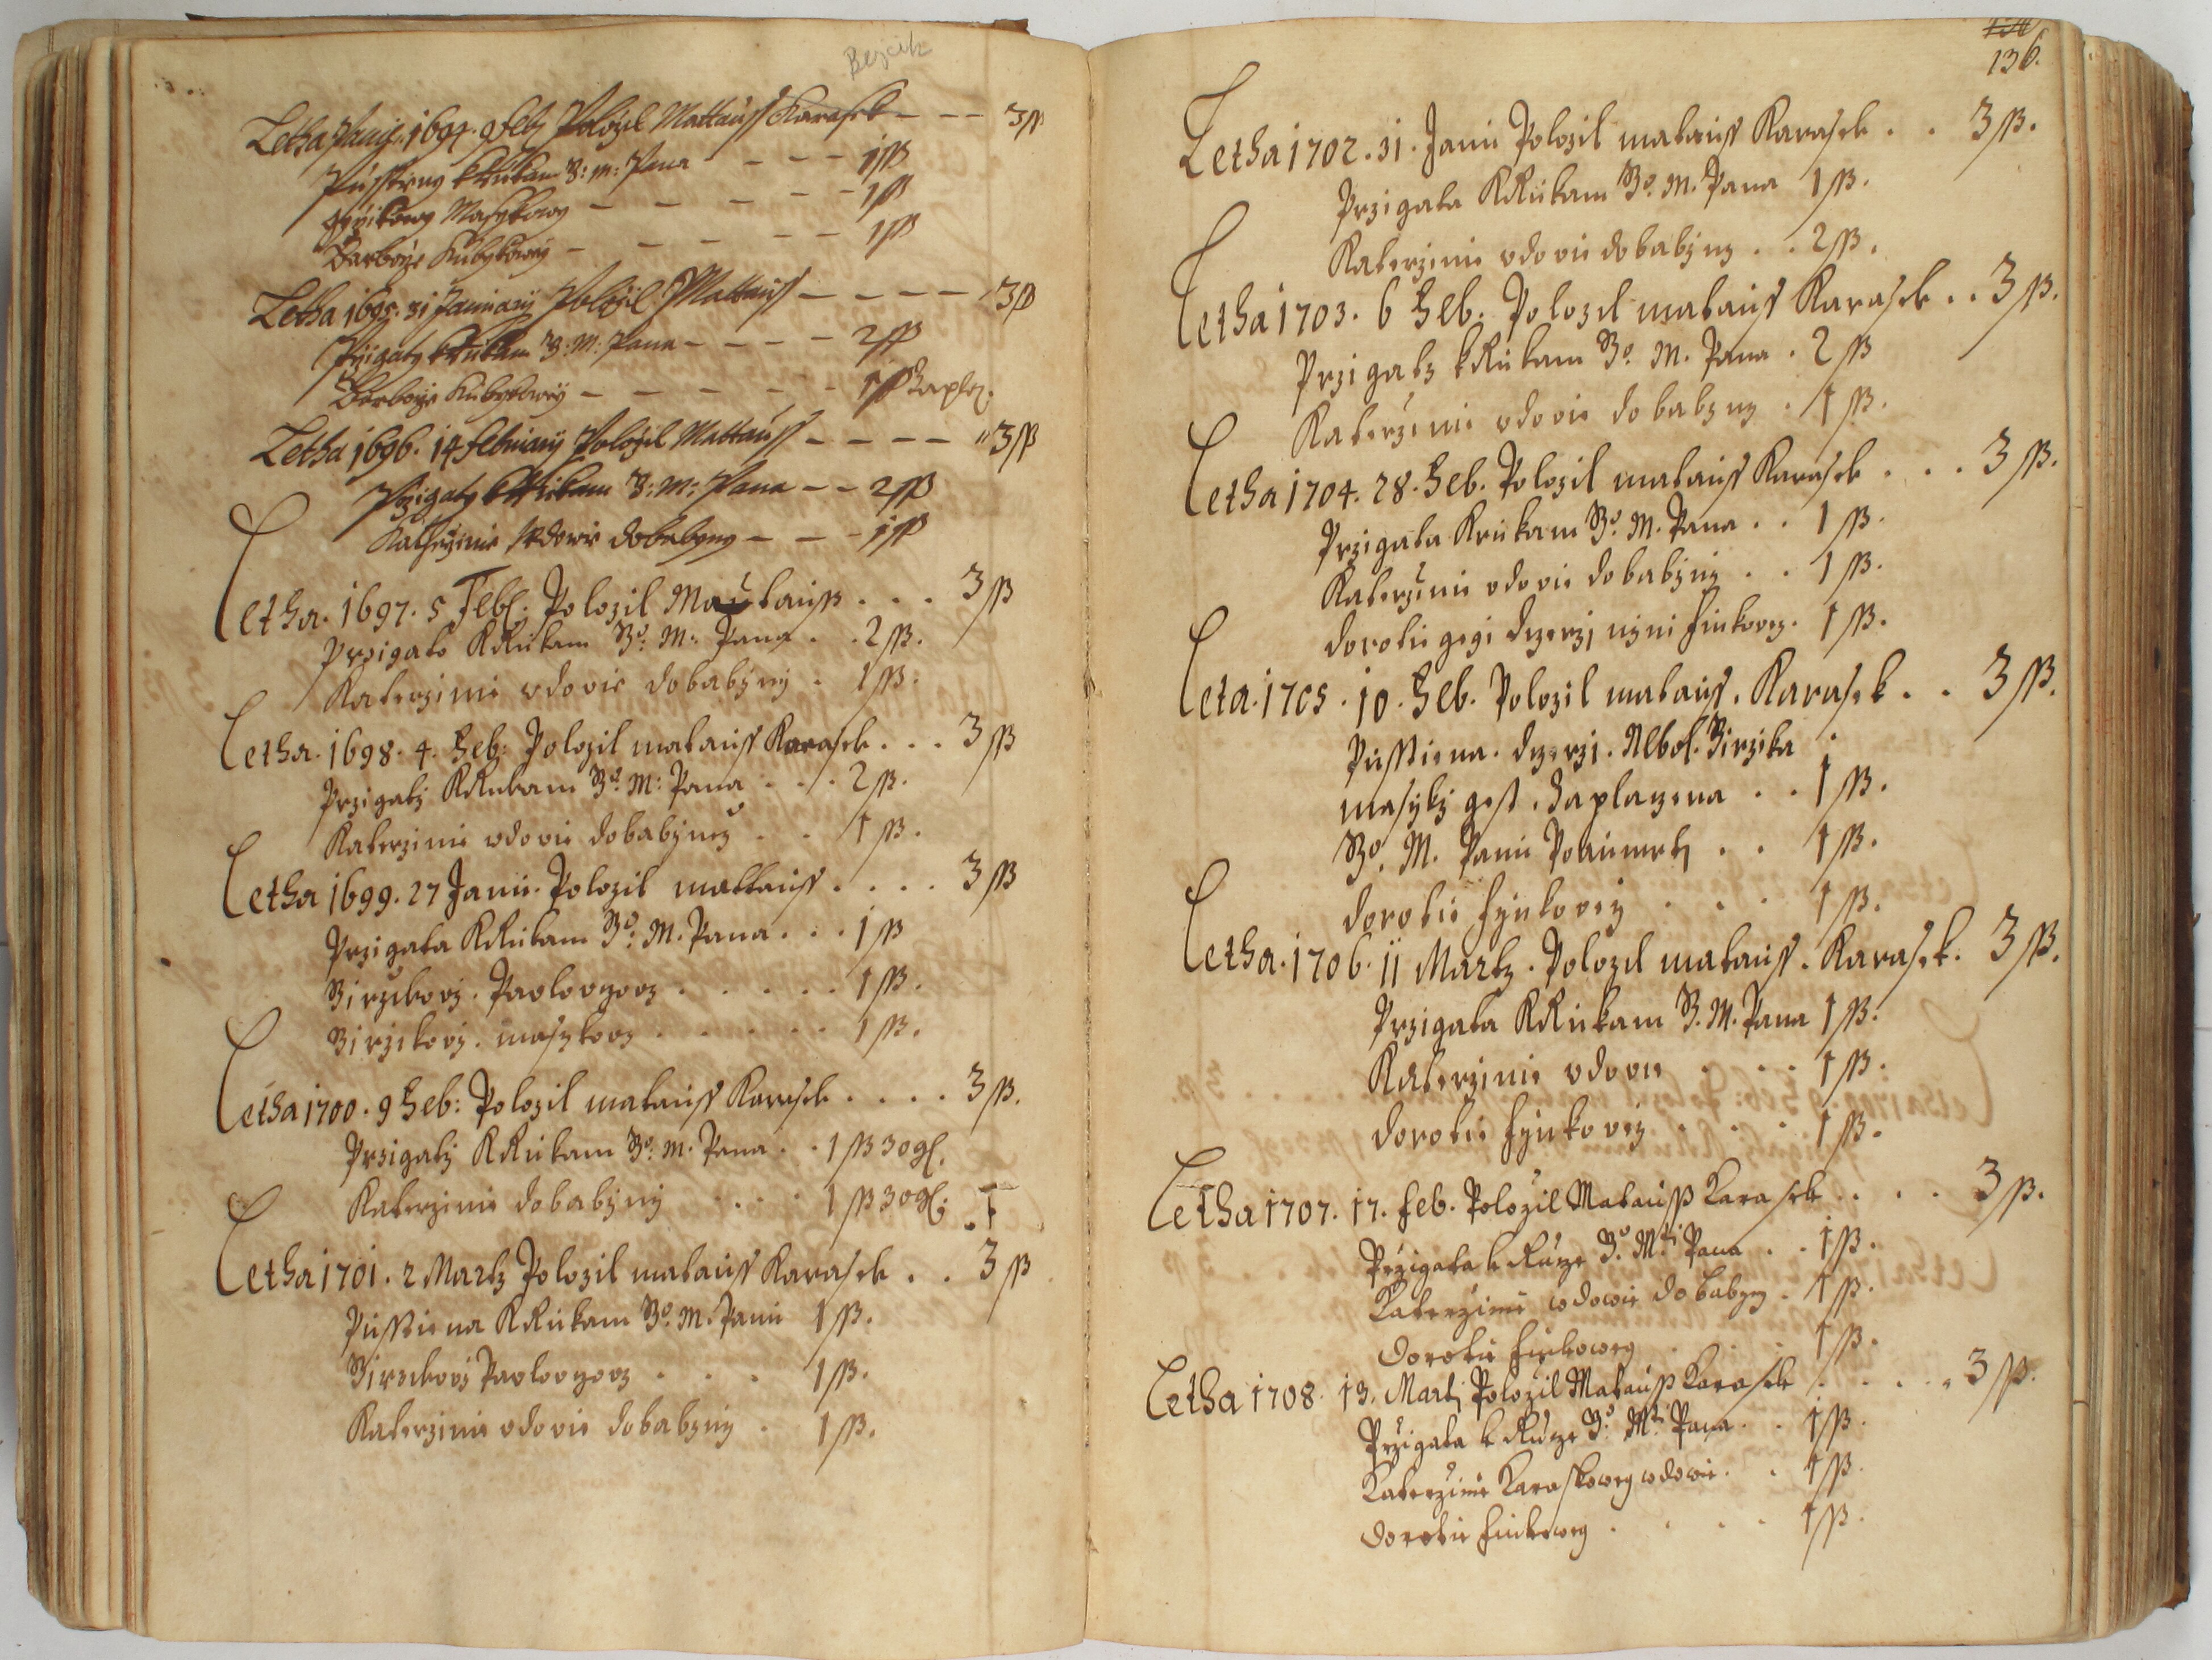 Bejcik
Letha Panie 1694. 9 Feb. Položil Mattauss Karasek – – – 3 ß
Pusstieny k Rukam J: M: Pana – – – – 1 ß
Masykowy – – – – – 1 ß
Barboře Kubykowy – – – – – 1 ß
Letha 1695. 31 January Položil Mattauss – – – – 3 ß
Przigaty k Rukam J: M: Pana – – – – 2 ß
Barboře Kubykowy – – – – – 1 ß Zaplcz.
Letha 1696. 14 February Položil Mattauss – – – – 3 ß
Przigaty k Rukam J: M: Pana – – 2 ß
Katherzinie Wdowie dobabyny – – – 1 ß
Letha. 1697. 5 Feb. Polozil Matauss . . . 3 ß
Przigato K Rukam Jo. M. Pana . . 2 ß.
Katerzinie vdovie dobabyny . 1 ß.
Letha. 1698. 4. Feb: Polozil matauss Karasek . . . 3 ß
Przigaty K Rukam Jo. M: Pana . . . 2 ß.
Katerzinie vdovie dobabyny . . 1 ß.
Letha 1699. 27 Janu. Polozil mattauss . . . . 3 ß
Przigata K Rukam Jo. M. Pana . . . 1 ß
Jirzikovy. Pavlovyovy . . . . . 1 ß.
Jirzikovy. masykovy . . . . . 1 ß.
Letha 1700. 9 Feb: Polozil matauss Karasek . . . . 3 ß.
Przigaty K Rukam Jo. M. Pana . . 1 ß 30 gl.
Katerzinie dobabyny . . . 1 ß 30 gl.
Letha 1701. 2 Martz Polozil matauss Karasek . . 3 ß
Pusstiena K Rukam Jo. M. Panu 1 ß.
Jirzikovy Pavlovyovy . . . 1 ß.
Katerzinie vdovie dobabyny . 1 ß.
136.
Letha 1702. 31. Janu Polozil matauss Karasek . . 3 ß.
Przigata K Rukam Jo. M. Pana 1 ß.
Katerzinie vdovie dobabyny . . 2 ß.
Letha 1703. 6 Feb. Polozil matauss Karasek . . 3 ß.
Przigaty k Rukam Jo. M. Pana . 2 ß
Katerzinie vdovie dobabyny . 1 ß.
Letha 1704. 28. Feb. Polozil matauss Karasek . . . 3 ß.
Przigata K rukam Jo. M. Pana . . 1 ß.
Katerzinie vdovie dobabyny . . 1 ß.
dorotie gegi dczerzi nyni finkovey. 1 ß.
Leta. 1705. 10. Feb. Polozil matauss. Karasek . . 3 ß.
Pusstiena. dczerzi. Jirzika
masyky gest. Zaplaczena . . 1 ß.
Jo. M. Panu . . 1 ß.
dorotie fynkovey . . . 1 ß.
Letha. 1706. 11 Martz. Polozil matauss. Karasek. 3 ß.
Przigata K Rukam J. M. Pana 1 ß.
Katerzinie vdovie . . . 1 ß.
dorotie fynkovey . . . 1 ß.
Letha 1707. 17. Feb. Položil Matauss Karasek . . . . 3 ß.
Przigata k Rucze Jo. Mti Pana . . 1 ß.
Katerzinie wdowie dobabyny . 1 ß.
Dorotie Finkowey . . . 1 ß.
Letha 1708. 13. Marti Položil Matauss Karasek . . . . . 3 ß.
Przigata k Rucze Jo. Mti Pana . . 1 ß.
Katerzinie Karaskowey wdowie . . 1 ß.
Dorotie Finkowey . . . . 1 ß.